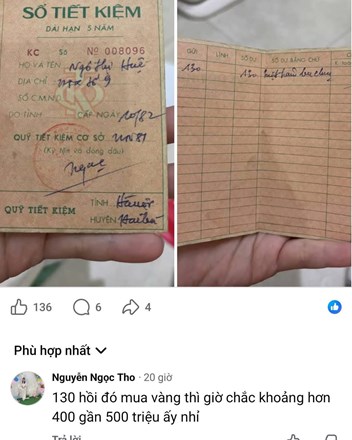 SỔ TIẾT KIỆM
DÀI HẠN 5 NĂM
KC Số Nº 008096
HỌ VÀ TÊN Ngô Thị Huê
ĐỊA CHỈ
SỐ C.M.N.D.
DO TỈNH CẤP NGÀY 10/82
QUỸ TIẾT KIỆM CƠ SỞ
(Ký tên và đóng dấu)
QUỸ TIẾT KIỆM
TỈNH Hà nội
HUYỆN
GỬI LĨNH SỐ DƯ SỐ DƯ BẰNG CHỮ
130 130 một trăm ba chục
136 6 4
Phù hợp nhất
Nguyễn Ngọc Tho · 20 giờ
130 hồi đó mua vàng thì giờ chắc khoảng hơn
400 gần 500 triệu ấy nhỉ
Trả lời